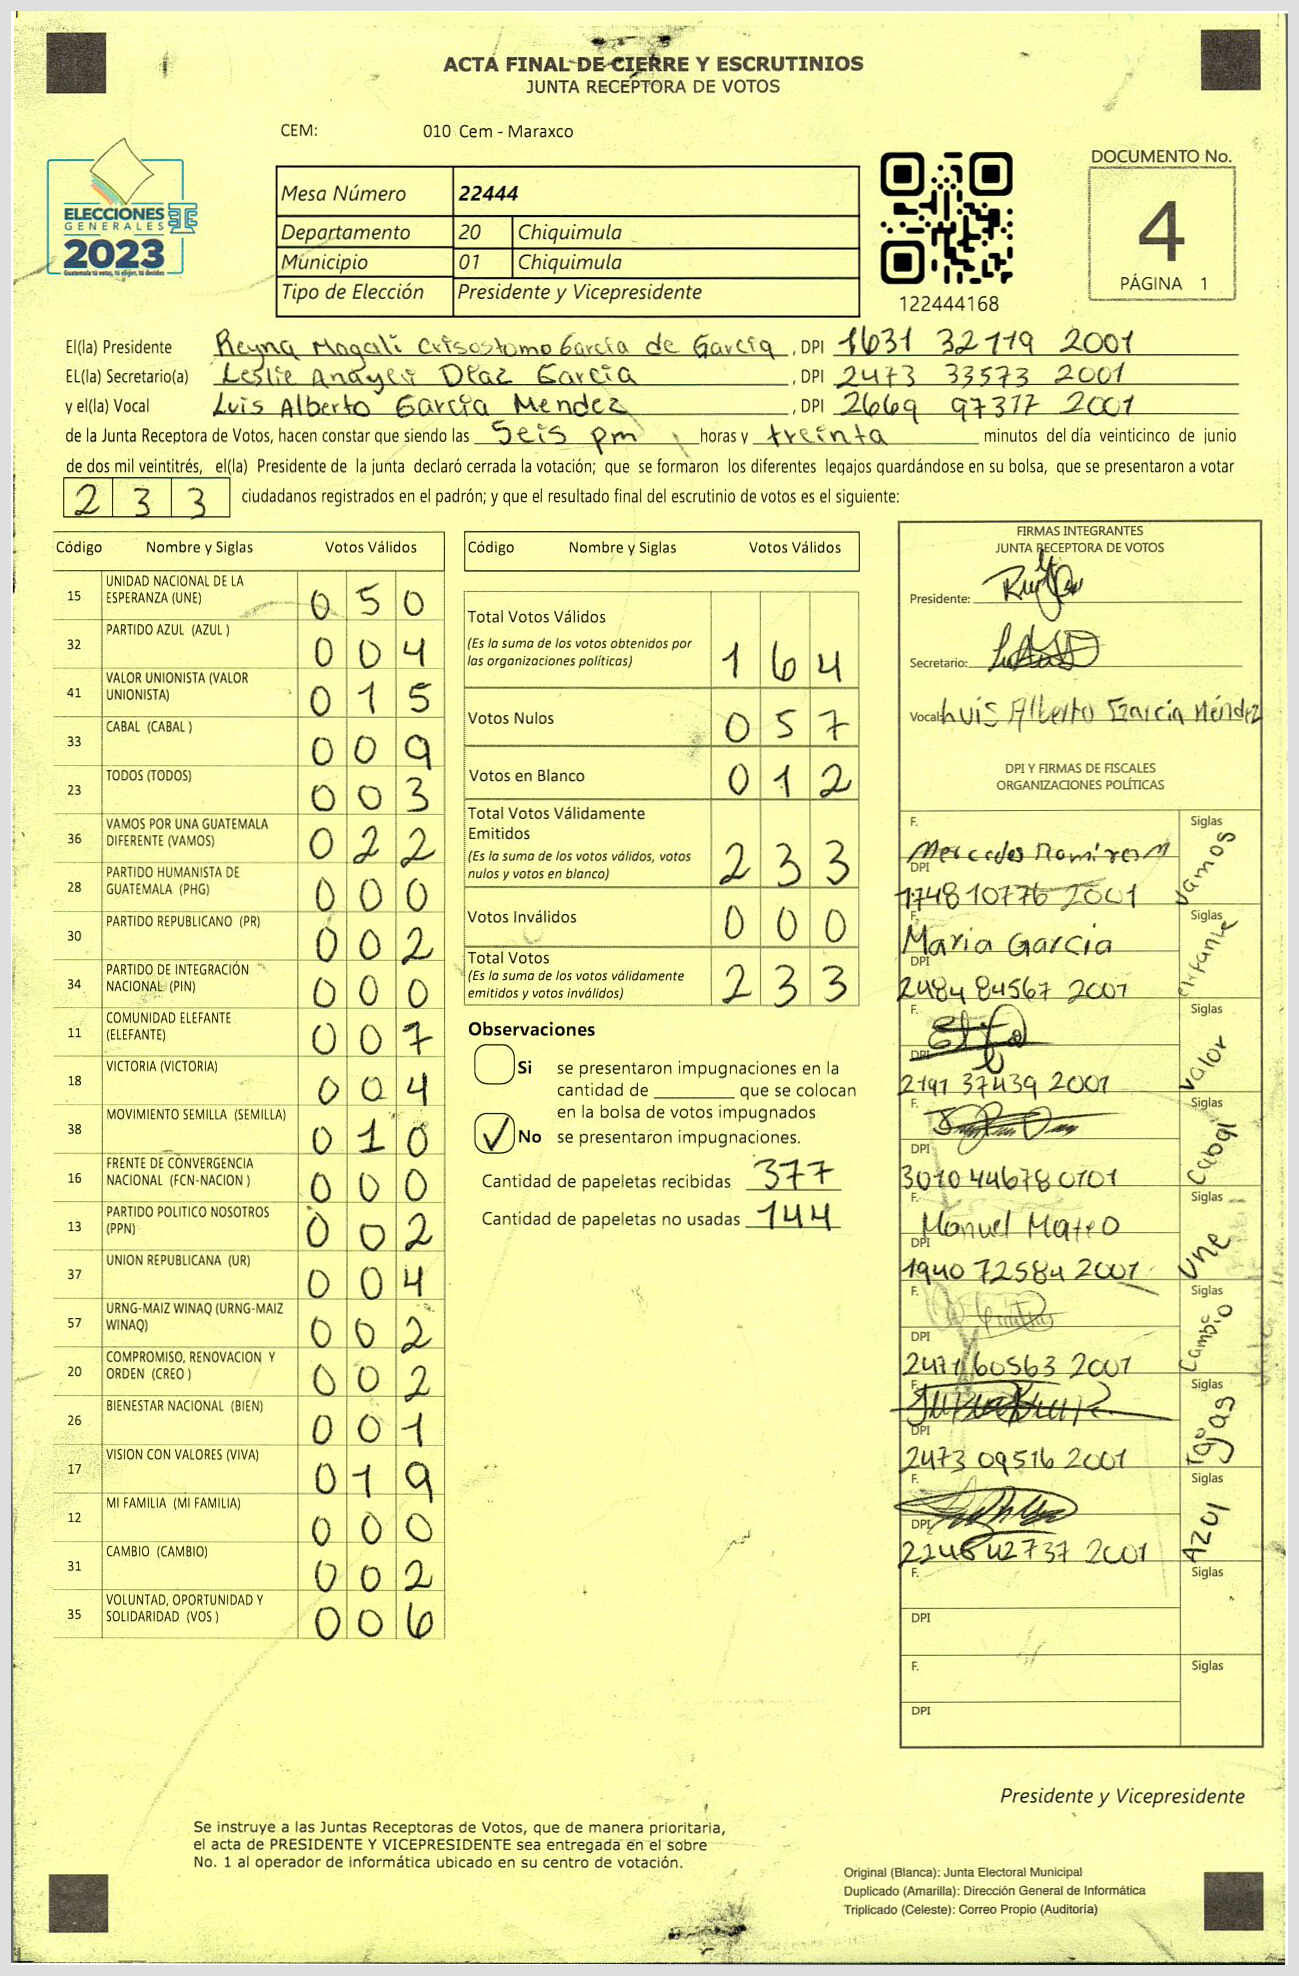 ACTA FINAL DE CIERRE Y ESCRUTINIOS
JUNTA RECEPTORA DE VOTOS
CEM: 010 Cem - Maraxco
ELECCIONES
GENERALES
2023
Guatemala tú votas, tú eliges, tú decides
Mesa Número 22444
Departamento 20 Chiquimula
Municipio 01 Chiquimula
Tipo de Elección Presidente y Vicepresidente
122444168
DOCUMENTO No.
4
PÁGINA 1
El(la) Presidente Reyna Magali Crisostomo García de García , DPI 1631 32119 2001
EL(la) Secretario(a) Leslie Anayeli Díaz García , DPI 2473 33573 2001
y el(la) Vocal Luis Alberto García Mendez , DPI 2669 97317 2001
de la Junta Receptora de Votos, hacen constar que siendo las Seis pm horas y treinta minutos del día veinticinco de junio
de dos mil veintitrés, el(la) Presidente de la junta declaró cerrada la votación; que se formaron los diferentes legajos guardándose en su bolsa, que se presentaron a votar
233 ciudadanos registrados en el padrón; y que el resultado final del escrutinio de votos es el siguiente:
Código Nombre y Siglas Votos Válidos
15 UNIDAD NACIONAL DE LA ESPERANZA (UNE) 0 5 0
32 PARTIDO AZUL (AZUL ) 0 0 4
41 VALOR UNIONISTA (VALOR UNIONISTA) 0 1 5
33 CABAL (CABAL ) 0 0 9
23 TODOS (TODOS) 0 0 3
36 VAMOS POR UNA GUATEMALA DIFERENTE (VAMOS) 0 2 2
28 PARTIDO HUMANISTA DE GUATEMALA (PHG) 0 0 0
30 PARTIDO REPUBLICANO (PR) 0 0 2
34 PARTIDO DE INTEGRACIÓN NACIONAL (PIN) 0 0 0
11 COMUNIDAD ELEFANTE (ELEFANTE) 0 0 7
18 VICTORIA (VICTORIA) 0 0 4
38 MOVIMIENTO SEMILLA (SEMILLA) 0 1 0
16 FRENTE DE CONVERGENCIA NACIONAL (FCN-NACION ) 0 0 0
13 PARTIDO POLITICO NOSOTROS (PPN) 0 0 2
37 UNION REPUBLICANA (UR) 0 0 4
57 URNG-MAIZ WINAQ (URNG-MAIZ WINAQ) 0 0 2
20 COMPROMISO, RENOVACION Y ORDEN (CREO ) 0 0 2
26 BIENESTAR NACIONAL (BIEN) 0 0 1
17 VISION CON VALORES (VIVA) 0 1 9
12 MI FAMILIA (MI FAMILIA) 0 0 0
31 CAMBIO (CAMBIO) 0 0 2
35 VOLUNTAD, OPORTUNIDAD Y SOLIDARIDAD (VOS ) 0 0 6
Código Nombre y Siglas Votos Válidos
Total Votos Válidos
(Es la suma de los votos obtenidos por
las organizaciones políticas) 1 6 4
Votos Nulos 0 5 7
Votos en Blanco 0 1 2
Total Votos Válidamente
Emitidos
(Es la suma de los votos válidos, votos
nulos y votos en blanco) 2 3 3
Votos Inválidos 0 0 0
Total Votos
(Es la suma de los votos válidamente
emitidos y votos inválidos) 2 3 3
Observaciones
Si se presentaron impugnaciones en la
cantidad de ________ que se colocan
en la bolsa de votos impugnados
No se presentaron impugnaciones.
Cantidad de papeletas recibidas 377
Cantidad de papeletas no usadas 144
FIRMAS INTEGRANTES
JUNTA RECEPTORA DE VOTOS
Presidente:
Secretario:
Vocal: Luis Alberto García Méndez
DPI Y FIRMAS DE FISCALES
ORGANIZACIONES POLÍTICAS
F. Mercedes Ramírez M Siglas Vamos
DPI 1748 10776 2001
F. Maria Garcia Siglas elefante
DPI 2484 84567 2001
F. Siglas Valor
DPI 2191 37439 2001
F. Siglas Cabal
DPI 3010 44678 0101
F. Manuel Mateo Siglas Une
DPI 1940 72584 2001
F. Siglas Cambio
DPI 2471 60563 2001
F. Siglas
DPI 2473 09516 2001
F. Siglas Azul
DPI 2248 42737 2001
F. Siglas
DPI
F. Siglas
DPI
Presidente y Vicepresidente
Se instruye a las Juntas Receptoras de Votos, que de manera prioritaria,
el acta de PRESIDENTE Y VICEPRESIDENTE sea entregada en el sobre
No. 1 al operador de informática ubicado en su centro de votación.
Original (Blanca): Junta Electoral Municipal
Duplicado (Amarilla): Dirección General de Informática
Triplicado (Celeste): Correo Propio (Auditoría)